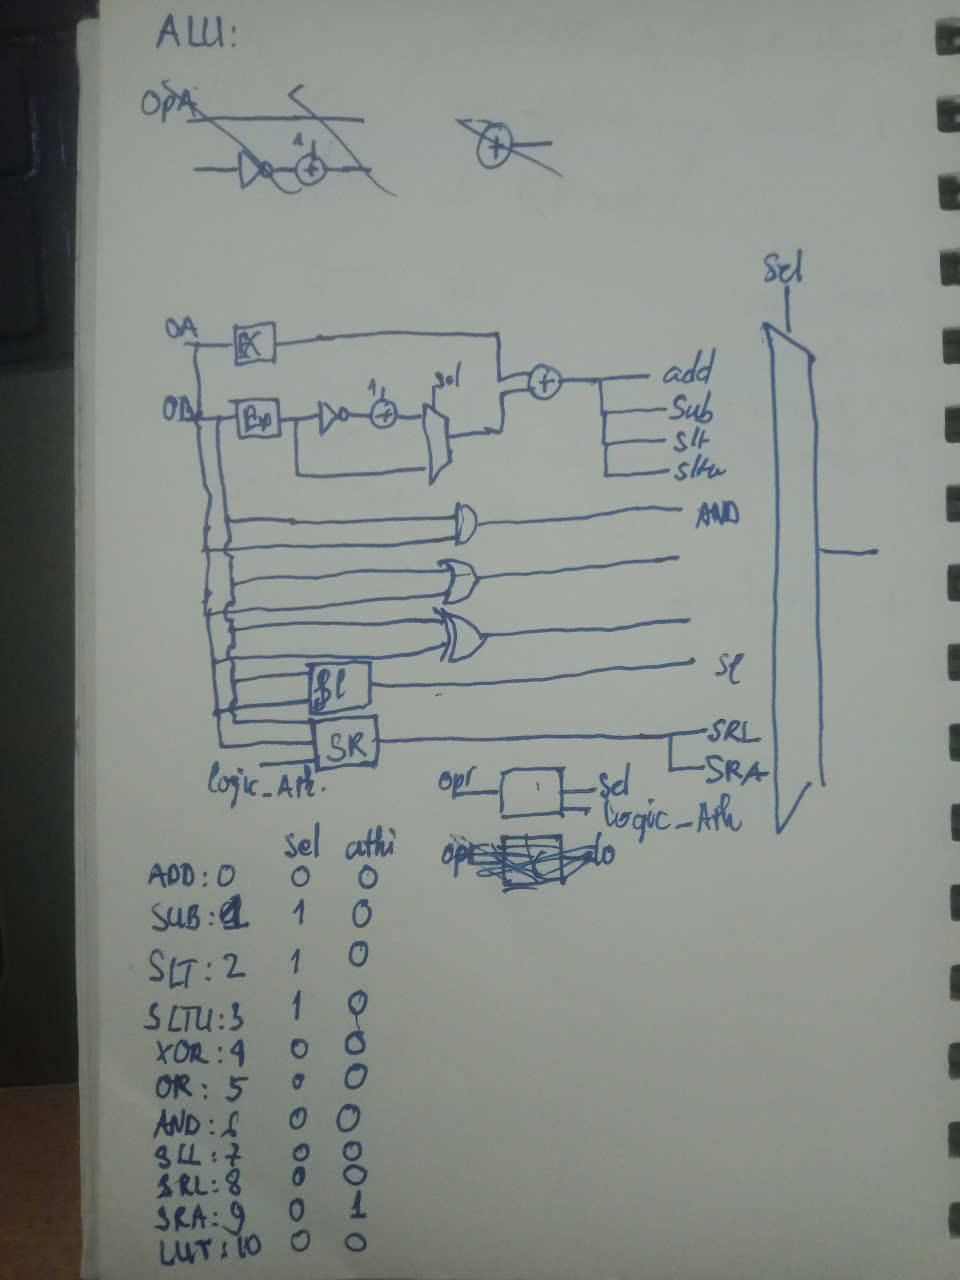 ALU:
OpA
1
+
+
Sel
OA
EX
OB
Exp
1
+
sel
+
add
Sub
slt
sltu
AND
Sl
SR
SRL
SRA
logic_Ath.
opr
sel
logic_Ath
sel athi
ADD: 0 0 0
SUB: 1 1 0
SLT: 2 1 0
SLTU: 3 1 0
XOR: 4 0 0
OR: 5 0 0
AND: 6 0 0
SLL: 7 0 0
SRL: 8 0 0
SRA: 9 0 1
LUT: 10 0 0